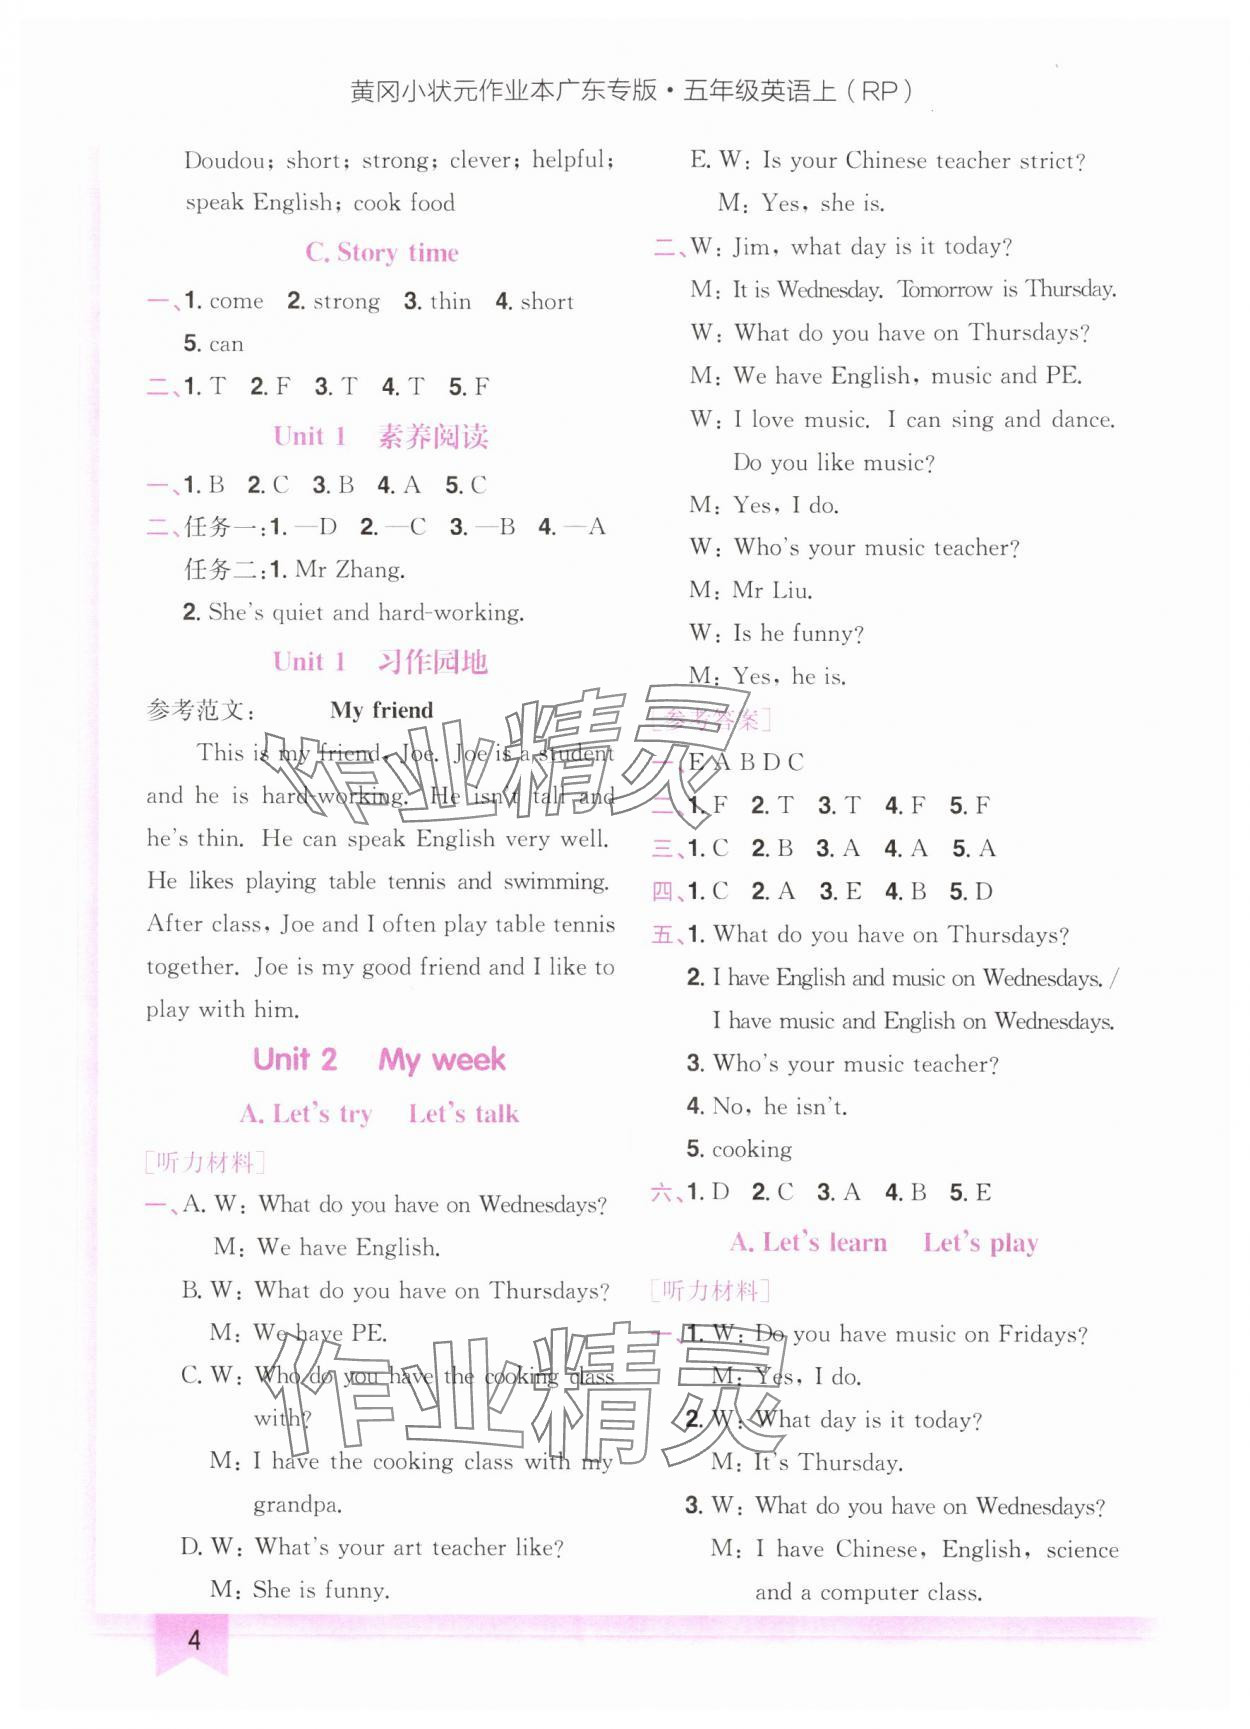 黄冈小状元作业本广东专版·五年级英语上（RP）
Doudou; short; strong; clever; helpful;
speak English; cook food
C. Story time
一、1. come 2. strong 3. thin 4. short
5. can
二、1. T 2. F 3. T 4. T 5. F
Unit 1 素养阅读
一、1. B 2. C 3. B 4. A 5. C
二、任务一:1. —D 2. —C 3. —B 4. —A
任务二:1. Mr Zhang.
2. She's quiet and hard-working.
Unit 1 习作园地
参考范文: My friend
This is my friend, Joe. Joe is a student
and he is hard-working. He isn't tall and
he's thin. He can speak English very well.
He likes playing table tennis and swimming.
After class, Joe and I often play table tennis
together. Joe is my good friend and I like to
play with him.
Unit 2 My week
A. Let's try Let's talk
[听力材料]
一、A. W: What do you have on Wednesdays?
M: We have English.
B. W: What do you have on Thursdays?
M: We have PE.
C. W: Who do you have the cooking class
with?
M: I have the cooking class with my
grandpa.
D. W: What's your art teacher like?
M: She is funny.
E. W: Is your Chinese teacher strict?
M: Yes, she is.
二、W: Jim, what day is it today?
M: It is Wednesday. Tomorrow is Thursday.
W: What do you have on Thursdays?
M: We have English, music and PE.
W: I love music. I can sing and dance.
Do you like music?
M: Yes, I do.
W: Who's your music teacher?
M: Mr Liu.
W: Is he funny?
M: Yes, he is.
[参考答案]
一、E A B D C
二、1. F 2. T 3. T 4. F 5. F
三、1. C 2. B 3. A 4. A 5. A
四、1. C 2. A 3. E 4. B 5. D
五、1. What do you have on Thursdays?
2. I have English and music on Wednesdays. /
I have music and English on Wednesdays.
3. Who's your music teacher?
4. No, he isn't.
5. cooking
六、1. D 2. C 3. A 4. B 5. E
A. Let's learn Let's play
[听力材料]
一、1. W: Do you have music on Fridays?
M: Yes, I do.
2. W: What day is it today?
M: It's Thursday.
3. W: What do you have on Wednesdays?
M: I have Chinese, English, science
and a computer class.
4
作业精灵
作业精灵